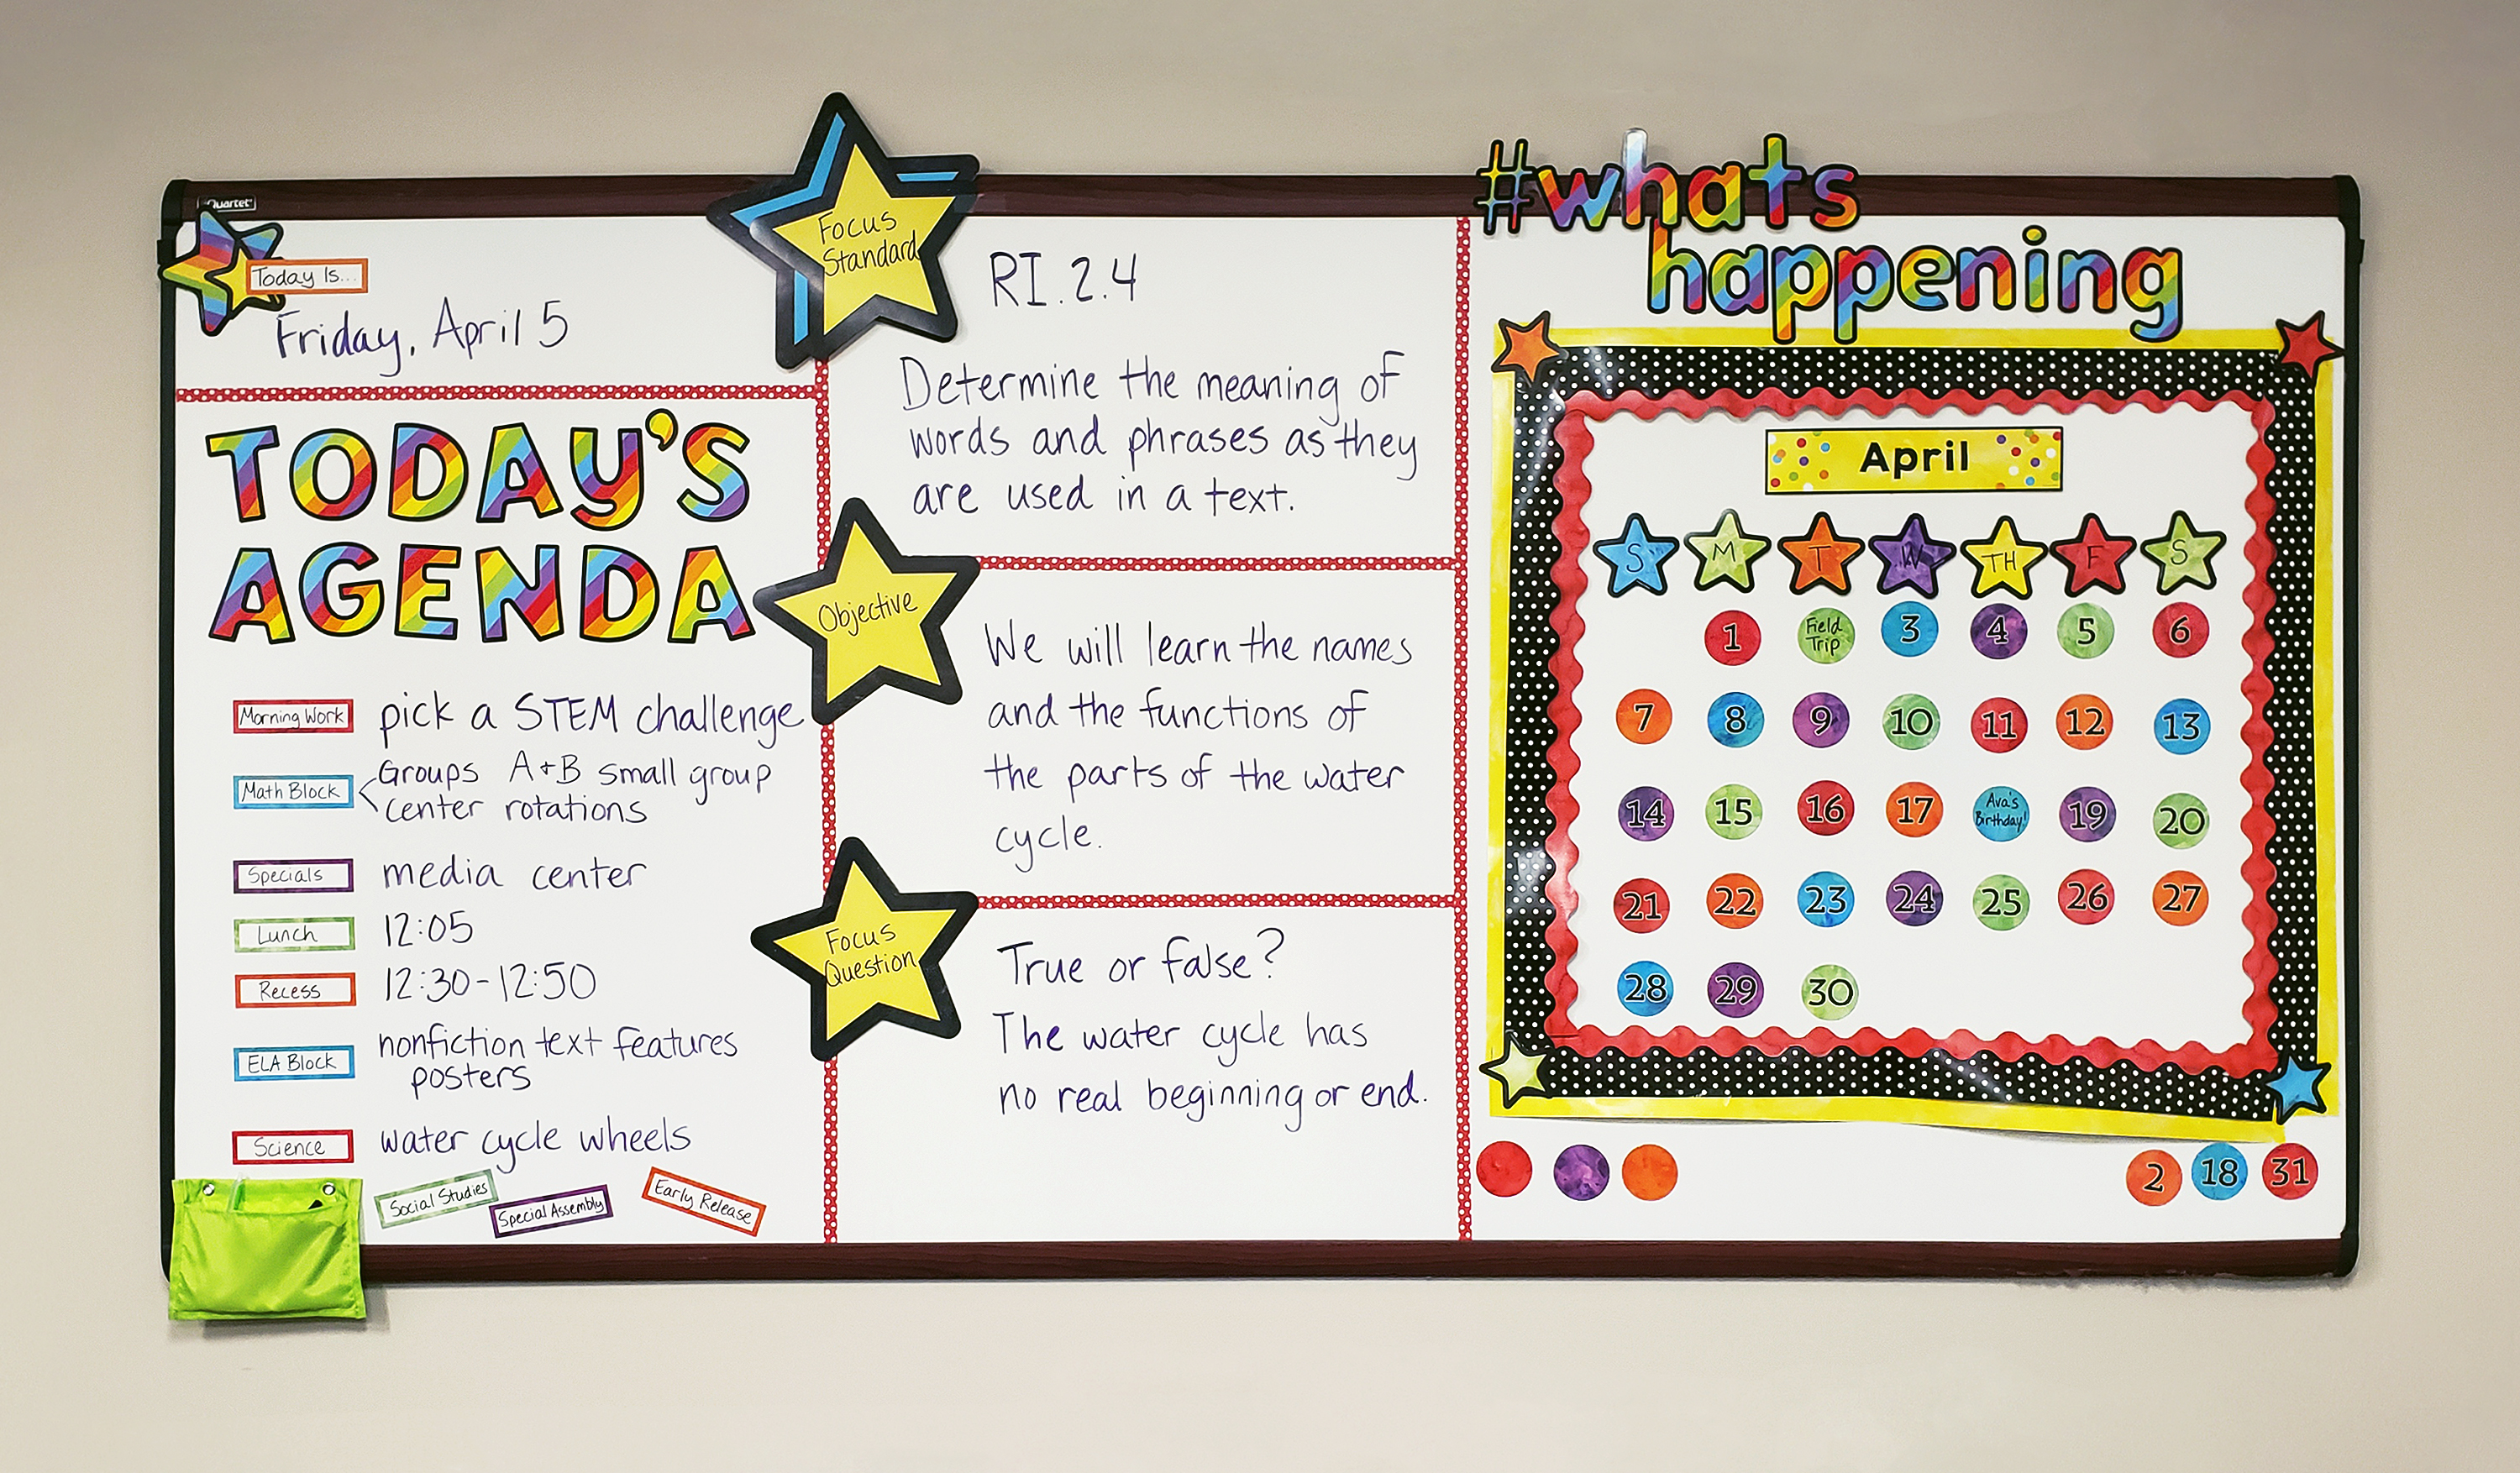 Quartet
Today Is...
Friday, April 5
TODAY'S
AGENDA
Morning Work
pick a STEM challenge
Math Block
Groups A+B small group
center rotations
Specials
media center
Lunch
12:05
Recess
12:30-12:50
ELA Block
nonfiction text features
posters
Science
water cycle wheels
Social Studies
Special Assembly
Early Release
Focus
Standard
RI.2.4
Determine the meaning of
words and phrases as they
are used in a text.
Objective
We will learn the names
and the functions of
the parts of the water
cycle.
Focus
Question
True or false?
The water cycle has
no real beginning or end.
#whats
happening
April
S M T W TH F S
1 Field Trip 3 4 5 6
7 8 9 10 11 12 13
14 15 16 17 Ava's Birthday! 19 20
21 22 23 24 25 26 27
28 29 30
2 18 31